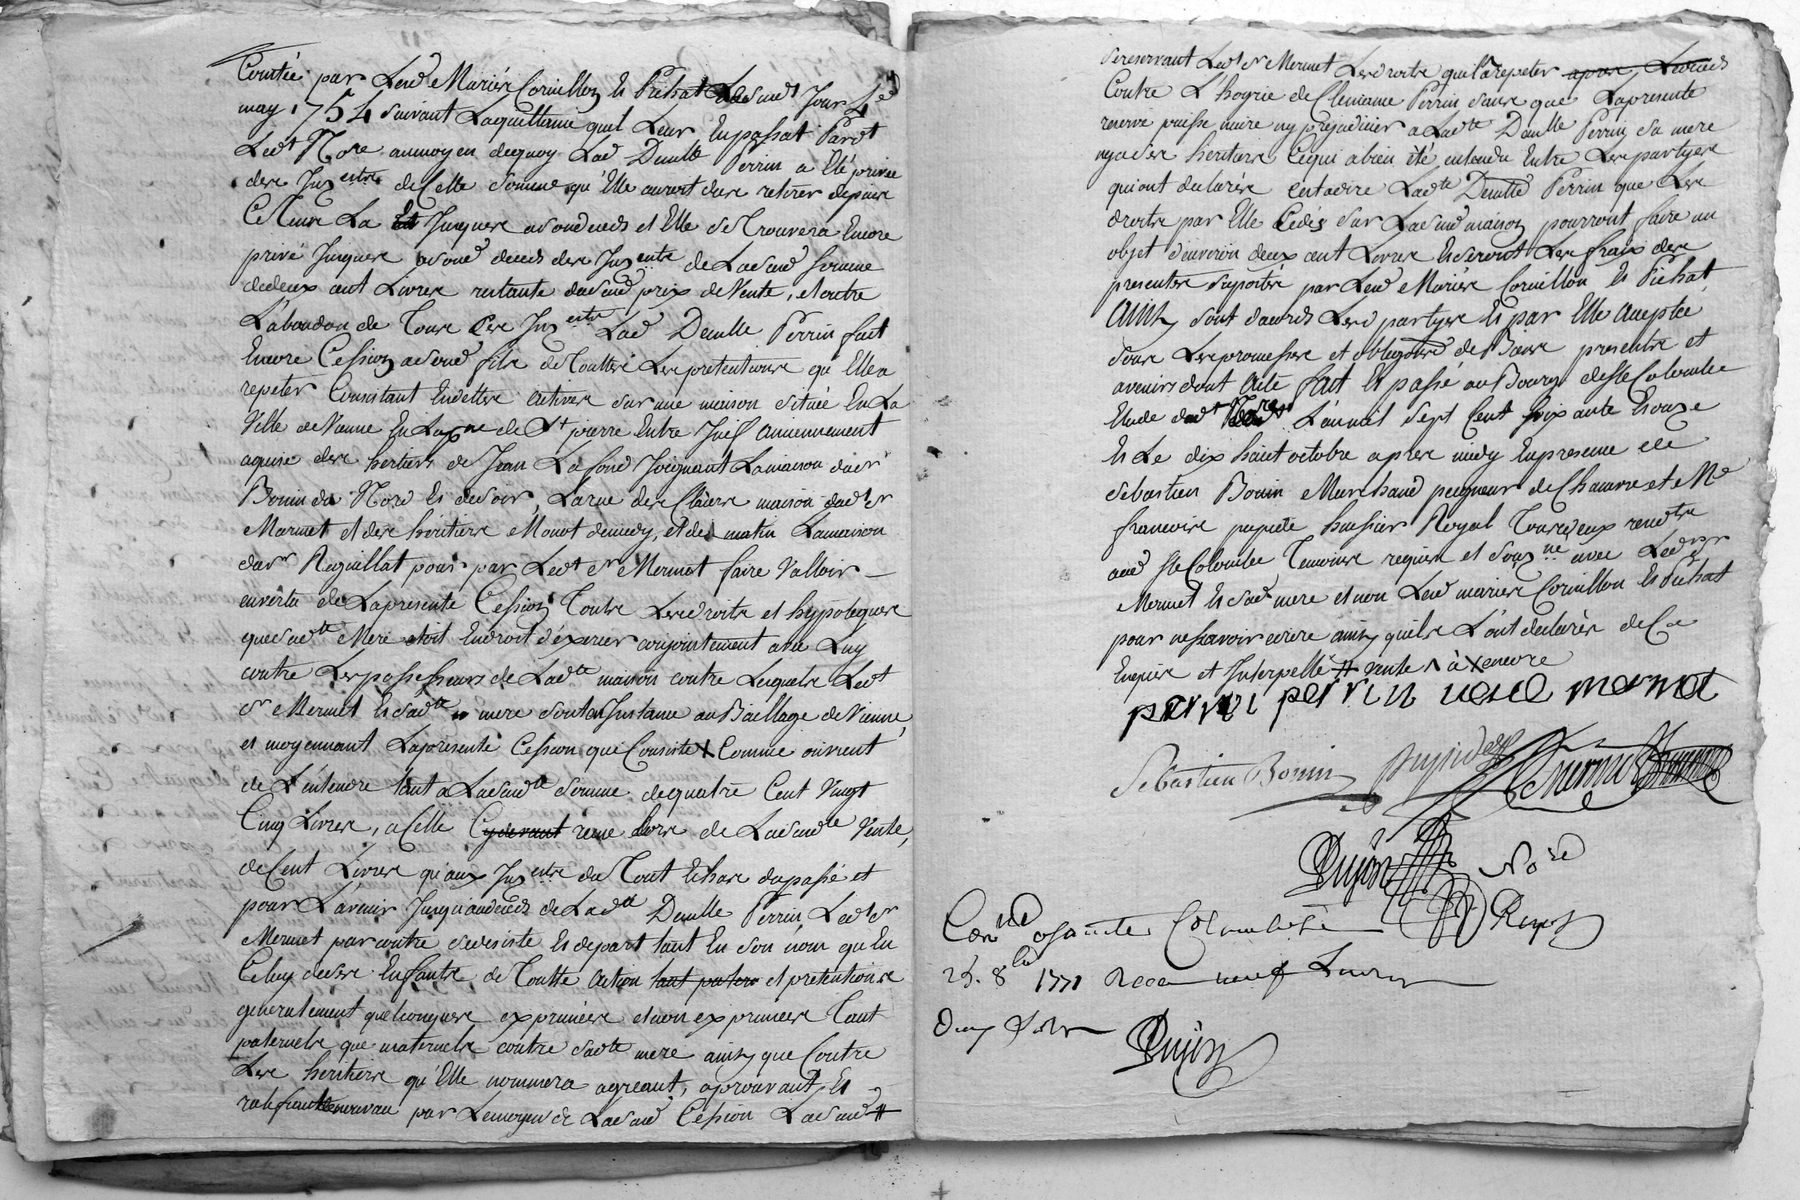 Comtée par Lesd Mariés Cornillon Et Pichat Ledsusd Jour 4e
may 1754 suivant Laquittance quil Leur En passat Pard̶t̶
Ledt Nore aumoyen dequoy Lad Demlle Perrin a Eté privée
des Intestz deCette somme qu'Elle auroit deu retirer depuis
Ce Tems La Jusques asondeceds et Elle seTrouvera Encore
privé Jusques asond deceds des Intestz de Ladsusd somme
dedeux cent Livres restante dudsusd prix deVente, et outre
L'abandon de Tous Ces Intestz Lad Demlle Perrin fait
Encore Cession asond fils deTouttes Les pretentions qu'Ellea
repeter Consistant Endettes actives sur une maison située En La
Ville de Vienne En Laparsse de St pierre Entre Juif anciennement
aquise des hertiers de Jean Lafond Joignant Lamaison dusr
Bonin du Nord Et dusoir, Larue des Clercs maison dudt sr
Mermet et des héritiers Monot demidy, et de matin Lamaison
dusr Roguillat pour par Ledt sr Mermet faire Valloir
envertu de Lapresente Cession Toutes Lesdroits et hypoteques
quesadte Mere etoit Endroit d'éxercer conjointement avec Luy
contre Lespossesseurs de Ladte maison contre Lesquels Ledt
sr Mermet Et sadte mere sont En Instance au Baillage de Vienne,
et moyennant Lapresente Cession que Consiste Comme onvient
de L'entendre tant a Ladsusdte somme de quatre Cent Vingt
Cinq Livres, a celle Cydevant reçue Lors de Ladsusdte Vente,
de Cent Livres qu'aux Intestz du Tout Echus dupassé et
pour L'avenir Jusqu'audeceds de Ladte Demlle Perrin, Ledt sr
Mermet parcontre sedesiste Et depart tant En son nom qu'En
Celuy deses Enfants de Toutte action tant patern et pretentions
generalement quelconques exprimées et non exprimées Tant
paternels que maternels contre sadte mere ainsy que Contre
Les héritiers qu'Elle nommera agreant, aprouvant, Et
ratifiant denouveau par Lemoyen de Ladsusd Cession Ladsusd #
sereservant Ledt sr Mermet Lesdroits quil a repeter apres Ledeceds
Contre L'hoyrie de Clemence Perrin sans que Lapresente
reserve puisse nuire ny prejudicier a Ladte Demlle Perrin sa mere
nyases heritiers Cequi abien été entendu Entre Les partyes
quiont declarés cestadire Ladte Demlle Perrin que Les
droits par Elle Cedés sur Ladsusd maison pourront faire un
objet d'environ deux cent Livres Et seront Les fraix des
presentes suportés par Lesd Mariés Cornillon Et Pichat,
Ainsy sont d'acords Lesd partyes Et par Elle Acceptée
sous Lespromesses et obligations de Biens presents et
avenirs dont Acte fait Et passé au Bourg de Ste Colombe
Etude dudt Nore L'anmil sept Cent soixante Et onze
Et Le dix huit octobre apres midy En presence de
sebastien Bonin Marchand peigneur de Chanvre et Me
francois pupide huissier Royal Tousdeux residts
aud Ste Colombe Temoins requis et soussnes avec Ledsr
Mermet Et sad mere et non Lesd mariés Cornillon Et Pichat
pour nesçavoir ecrire ainsy quils L'ont declarés de Ce
Enquis et Interpellé # vente ^ à X encore
perrin veuve mermet
Sebastien Bonin
Dujon Nore
Conlle a Sainte Colombe le
25. 8bre 1771 Recu neuf Livres
Dujon